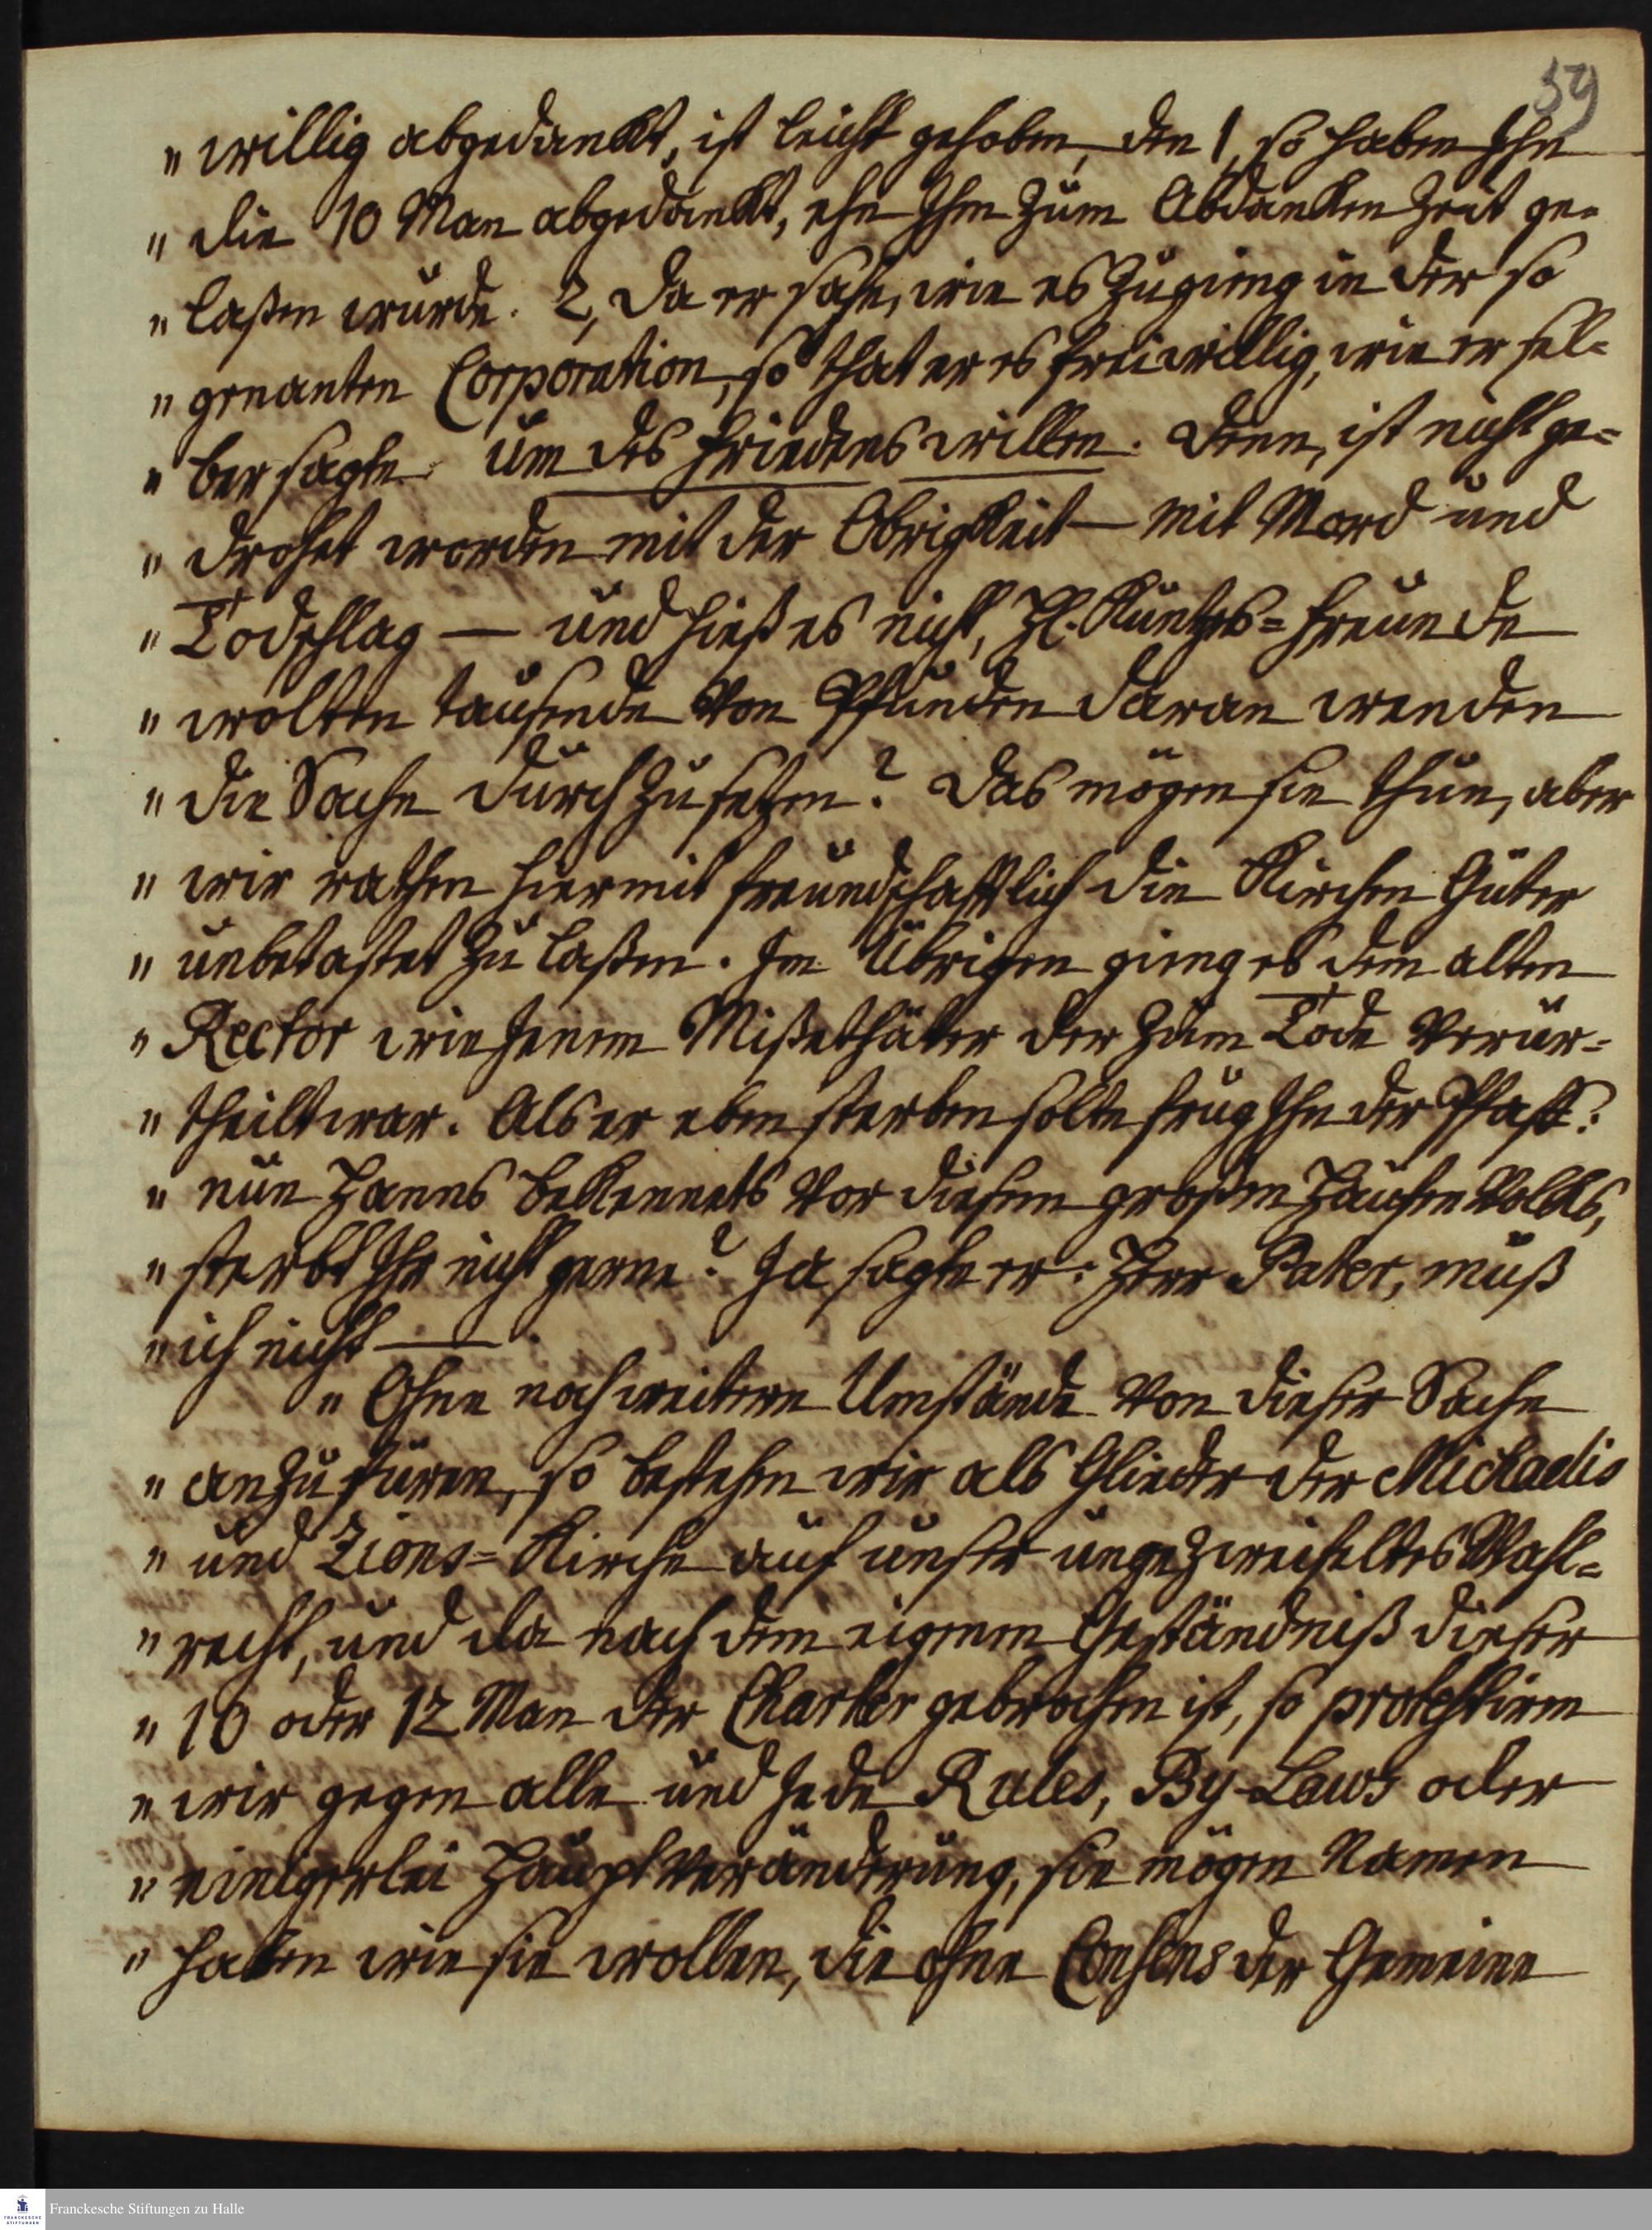 59
„ willig abgedankt, ist leicht gehoben, den 1, so haben Ihn
„ die 10 Man abgedankt, ehe Ihm zum Abdanken Zeit ge-
„ laßen wurde. 2, Da er sahe, wie es zugieng in der so
„ genanten Corporation, so that er es freiwillig, wie er sel-
„ ber sagte um des Friedens willen. Denn, ist nicht ge-
„ drohet worden mit der Obrigkeit — mit Mord und
„ Todschlag — und hieß es nicht, H. Kuntzes-Freunde
„ wolten tausende von Pfunden daran wenden
„ die Sache durchzusetzen? Das mögen sie thun, aber
„ wir rathen hiermit freundschafftlich die Kirchen Güter
„ unbetastet zu laßen. Im Übrigen gieng es dem alten
„ Rector wie jenem Mißethäter der zum Tode verur-
„ theilt war. Als er eben sterben solte frug Ihn der Pfaff:
„ nun Hanns bekennets vor diesem großen Haufen Volcks,
„ sterbt Ihr nicht gerne? Ja sagte er: Herr Pater, muß
„ ich nicht —
„ Ohne noch weitere Umstände von dieser Sache
„ anzufüren, so bestehen wir als Glieder der Michaelis
„ und Zions-Kirche auf unser ungezweifeltes Wahl-
„ recht, und da nach dem eigenen Geständniß dieser
„ 10 oder 12 Man der Charter gebrochen ist, so protestiren
„ wir gegen alle und jede Rules, By-Laws oder
„ einigerlei Hauptveränderung, sie mögen Namen
„ haben wie sie wollen, die ohne Consens der Gemeine
Franckesche Stiftungen zu Halle
FRANCKESCHE
STIFTUNGEN